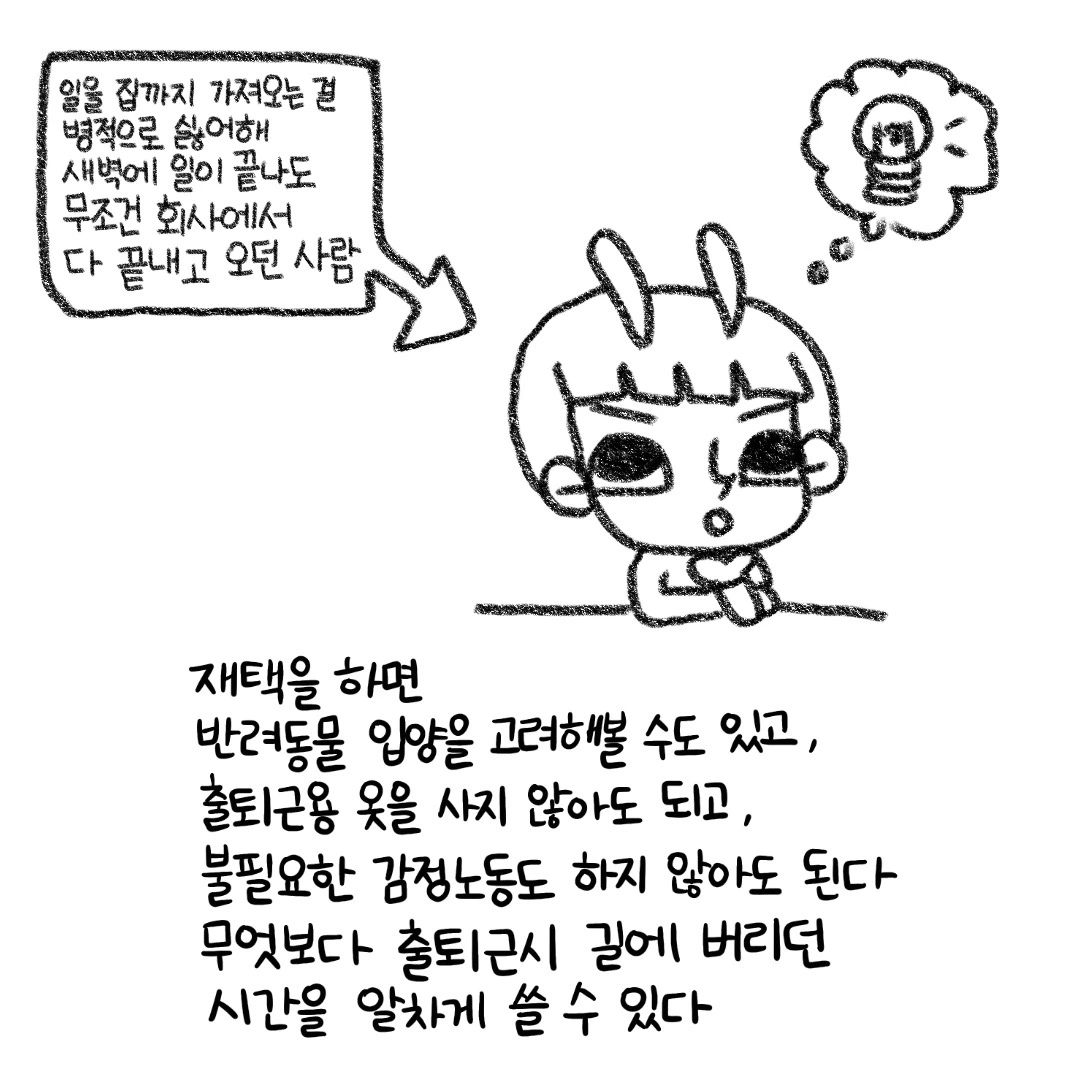 일을 집까지 가져오는 걸
병적으로 싫어해
새벽에 일이 끝나도
무조건 회사에서
다 끝내고 오던 사람
재택을 하면
반려동물 입양을 고려해볼 수도 있고,
출퇴근용 옷을 사지 않아도 되고,
불필요한 감정노동도 하지 않아도 된다
무엇보다 출퇴근시 길에 버리던
시간을 알차게 쓸 수 있다